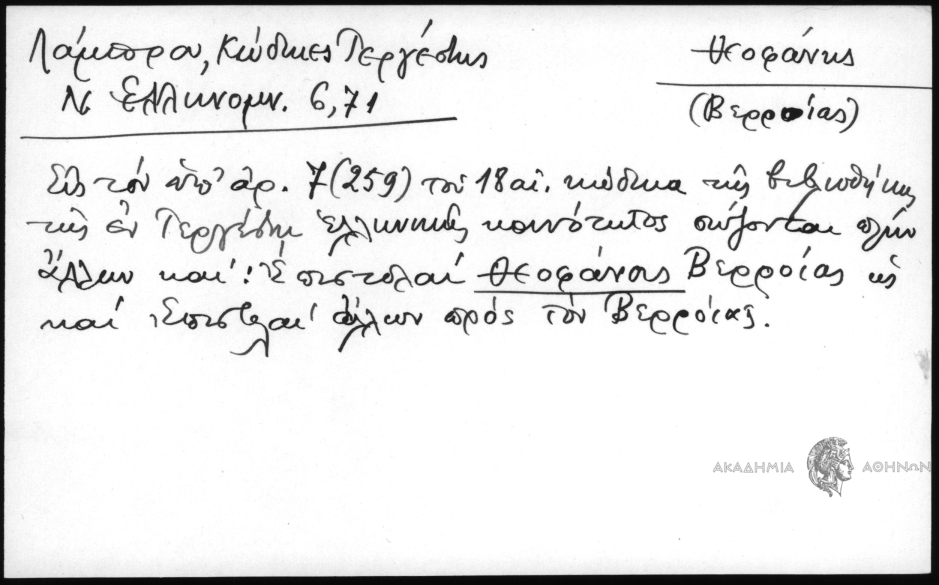 Λάμπρου, Κώδικες Τεργέστης
Ν Ελληνομν. 6,71
Θεοφάνης
(Βερροίας)
Εἰς τόν ὑπ' ἀρ. 7(259) τοῦ 18 αἰ. κώδικα τῆς βιβλιοθήκης
τῆς ἐν Τεργέστῃ ἑλληνικῆς κοινότητος σώζονται πλήν
ἄλλων καί: Ἐπιστολαί Θεοφάνους Βερροίας ὡς
καί ἐπιστολαί ἄλλων πρός τόν Βερροίας.
ΑΚΑΔΗΜΙΑ ΑΘΗΝΩΝ